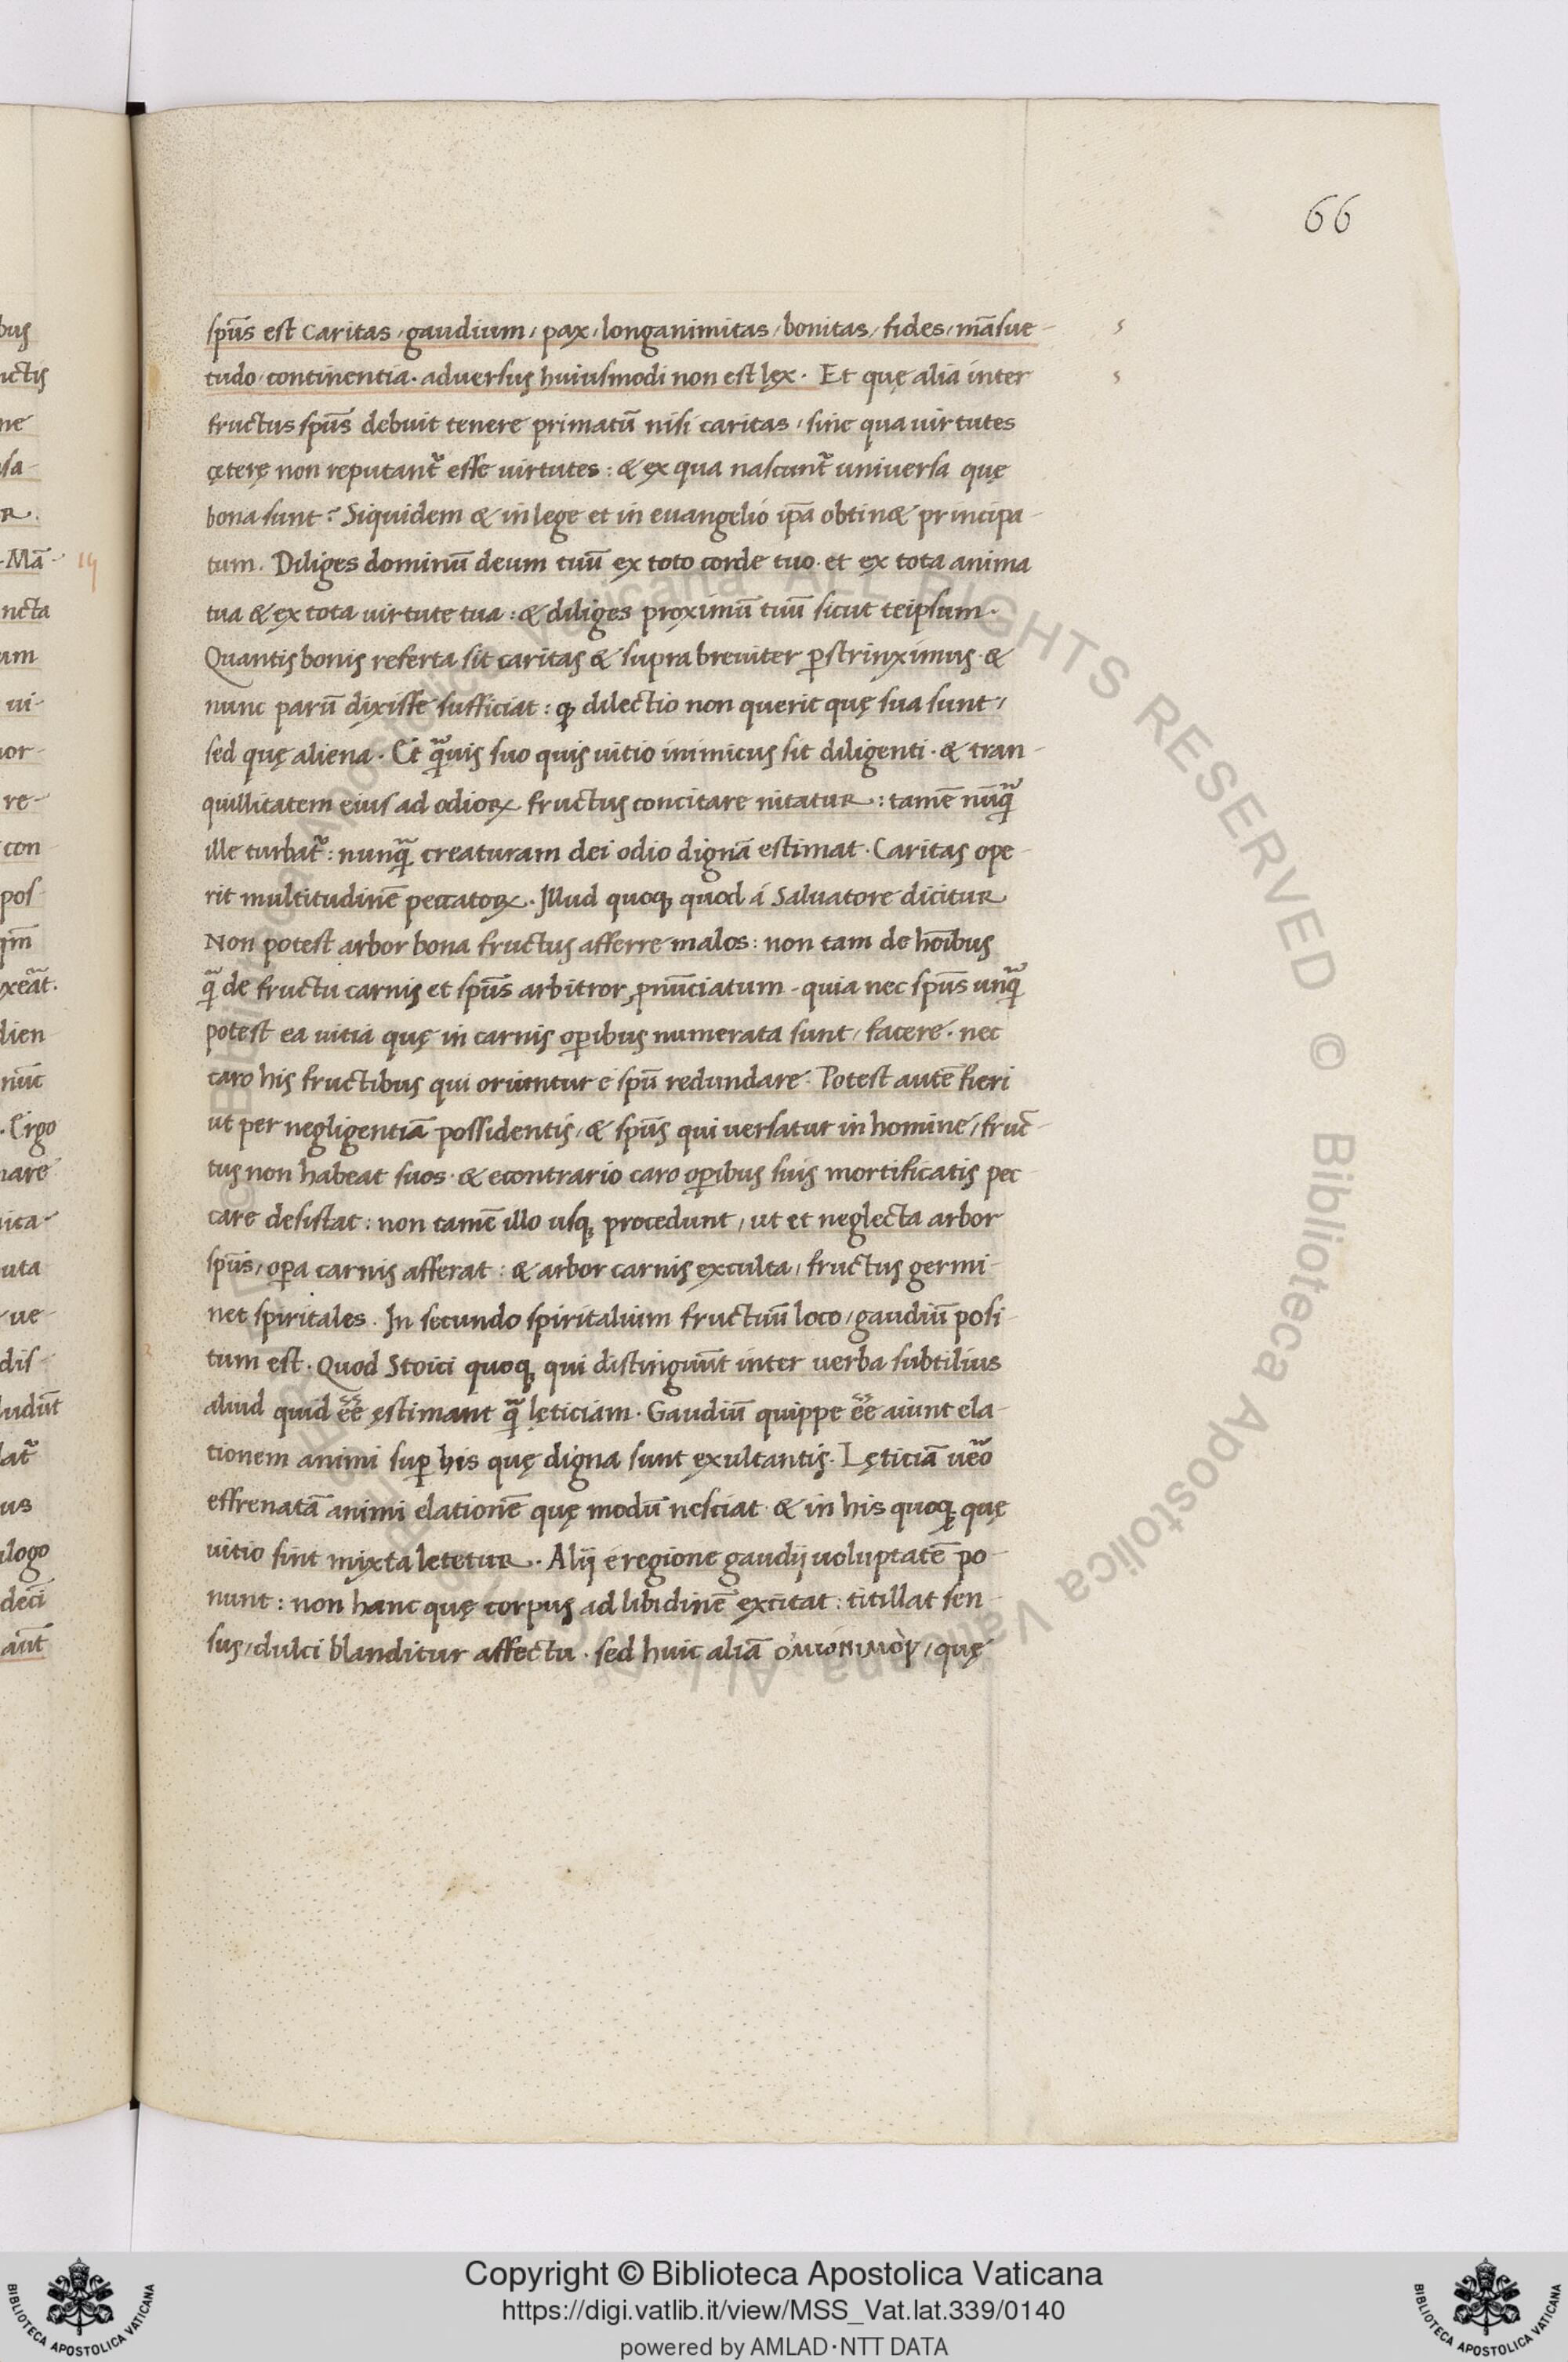 66
spūs est caritas, gaudium, pax, longanimitas, bonitas, fides, māsue-
tudo, continentia. adversus huiusmodi non est lęx. Et quę alia inter
fructus spūs debuit tenere primatū nisi caritas, sine qua uirtutes
cęterę non reputant̃ esse uirtutes: & ex qua nascunt̃ universa quę
bona sunt? Siquidem & in lege et in euangelio ip̄a obtin& principa-
tum. Diliges dominū deum tuū ex toto corde tuo. et ex tota anima
tua & ex tota uirtute tua: & diliges proximū tuū sicut teipsum.
Quantis bonis referta sit caritas & supra breuiter p̄strinximus. &
nunc parū dixisse sufficiat: ꝙ dilectio non querit quę sua sunt,
sed quę aliena. Et q̃uis suo quis uitio inimicus sit diligenti. & tran-
quillitatem eius ad odioꝝ fructus concitare nitatur: tamē nūq̃
ille turbat̃: nunq̃ creaturam dei odio dignā estimat. Caritas ope-
rit multitudinē peccatoꝝ. Illud quoq; quod á Saluatore dicitur
Non potest arbor bona fructus afferre malos: non tam de hoībus
q̃ de fructu carnis et spūs arbitror ꝓnūciatum. quia nec spūs unq̃
potest ea uitia quę in carnis op̄ibus numerata sunt, facere. nec
caro his fructibus qui oriuntur é spū redundare. Potest autē fieri
ut per negligentiā possidentis, & spūs qui uersatur in homine, fruc-
tus non habeat suos. & econtrario caro op̄ibus suis mortificatis pec-
care desistat: non tamē illo usq; procedunt, ut et neglecta arbor
spūs, op̄a carnis afferat: & arbor carnis exculta, fructus germi-
net spiritales. In secundo spiritalium fructuū loco, gaudiū posi-
tum est. Quod Stoici quoq; qui distinguūt inter uerba subtilius
aliud quid ēē ęstimant q̃ lęticiam. Gaudiū quippe ēē aiunt ela-
tionem animi sup̄ his quę digna sunt exultantis. Lęticiā ue͂o
effrenatā animi elationē quę modū nesciat. & in his quoq; quę
uitio sint mixta letetur. Alij é regione gaudij uoluptatē po-
nunt: non hanc quę corpus ad libidinē excitat: titillat sen-
sus, dulci blanditur affectu. sed huic aliā ὁμώνυμον, quę
© Biblioteca Apostolica Vaticana ALL RIGHTS RESERVED
Copyright © Biblioteca Apostolica Vaticana
https://digi.vatlib.it/view/MSS_Vat.lat.339/0140
powered by AMLAD·NTT DATA
BIBLIOTECA APOSTOLICA VATICANA
BIBLIOTECA APOSTOLICA VATICANA